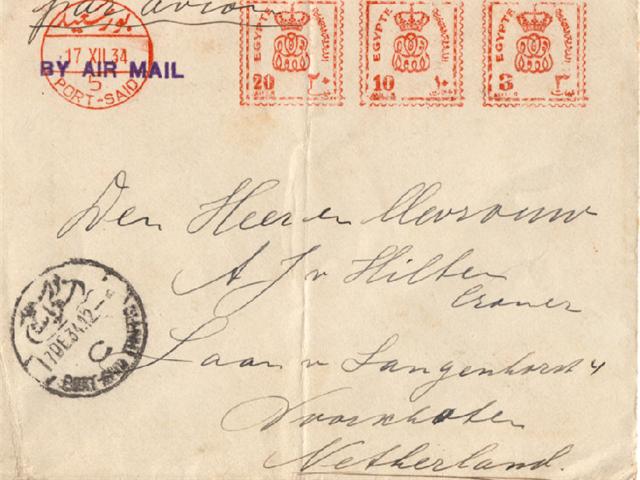 par avion
بورسعيد
17 XII 34
5
PORT-SAID
BY AIR MAIL
EGYPTE
20 ٢٠
EGYPTE
10 ١٠
EGYPTE
3 ٣
Den Heer en Mevrouw
A J v Hilten
Cramer
Laan v Langenhorst 4
Voorschoten
Netherland.
17 DE 34. 12-
PORT-SAID